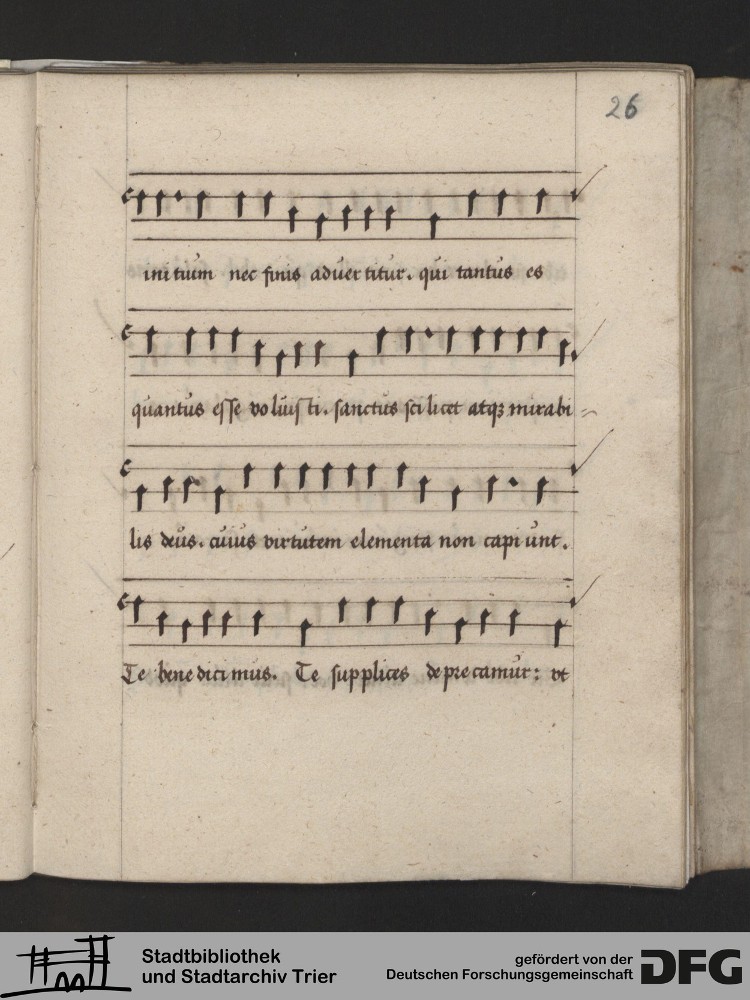 26
initium nec finis aduertitur. qui tantus es
quantus esse voluisti. sanctus scilicet atqꝫ mirabi=
lis deus. cuius virtutem elementa non capiunt.
Te benedicimus. Te supplices deprecamur: vt
Stadtbibliothek
und Stadtarchiv Trier
gefördert von der
Deutschen Forschungsgemeinschaft
DFG